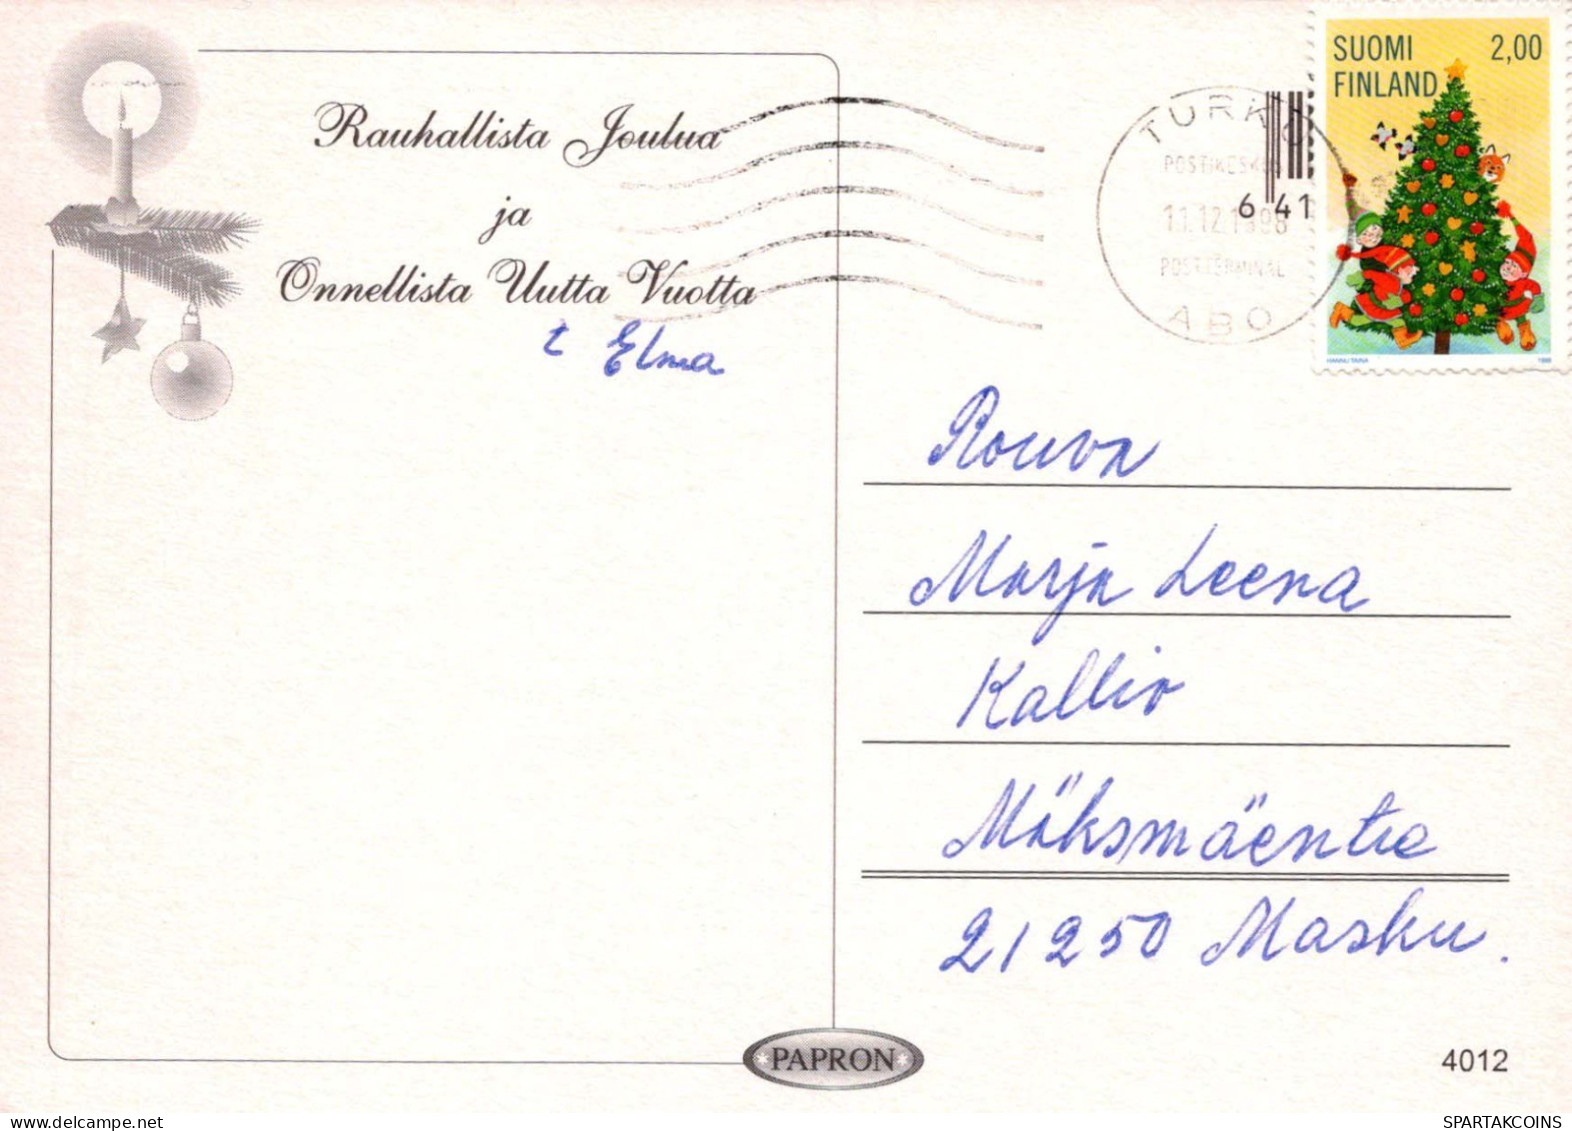 Rauhallista Joulua
ja
Onnellista Uutta Vuotta
t Elma
SUOMI 2,00
FINLAND
HANNU TAINA 1998
TURKU
POSTIKESKUS
11.12.1998
POSTTERMINAL
ÅBO
6 41
Rouva
Marja Leena
Kallio
Mäksmäentie
21250 Masku.
PAPRON
4012
delcampe.net
SPARTAKCOINS